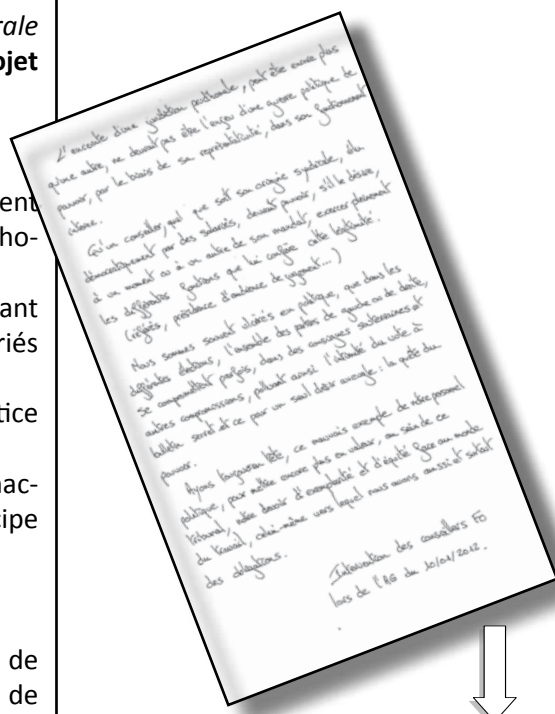 rale
bjet
ent
ho-
ant
riés
tice
nac-
cipe
de
de
L'enceinte d'une juridiction prud'homale, peut être encore plus
qu'une autre, ne devrait pas être l'enjeu d'une guerre politique de
pouvoir, par le biais de sa représentativité, dans son fonctionnement
interne.
Qu'un conseiller, quel que soit son origine syndicale, élu
démocratiquement par des salariés, devrait pouvoir, s'il le désire,
à un moment ou à un autre de son mandat, exercer pleinement
les différentes fonctions que lui confère cette légitimité.
(référés, présidence d'audience de jugement...)
Nous sommes souvent ulcérés en politique, que dans les
différentes élections, l'ensemble des partis de gauche ou de droite,
se compromettent parfois, dans des consignes souterraines et
autres compromissions, polluant ainsi l'intimité du vote à
bulletin secret et ce par un seul désir aveugle : la quête du
pouvoir.
Ayons toujours en tête, ce mauvais exemple de notre personnel
politique, pour mettre encore plus en valeur, au sein de ce
tribunal, notre devoir d'exemplarité et d'équité face au monde
du travail, celui-même vers lequel nous avons aussi et surtout
des obligations.
Intervention des conseillers FO
lors de l'AG du 10/01/2012.